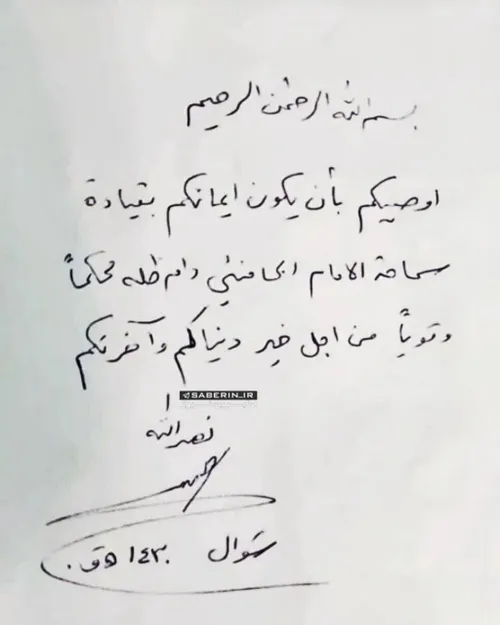 بسم الله الرحمن الرحيم
اوصيكم بأن يكون ايمانكم بقيادة
سماحة الامام الخامنئي دام ظله محكماً
وقوياً من اجل خير دنياكم وآخرتكم
SABERIN_IR
نصر الله
شوال ١٤٣٠ هـ ق.